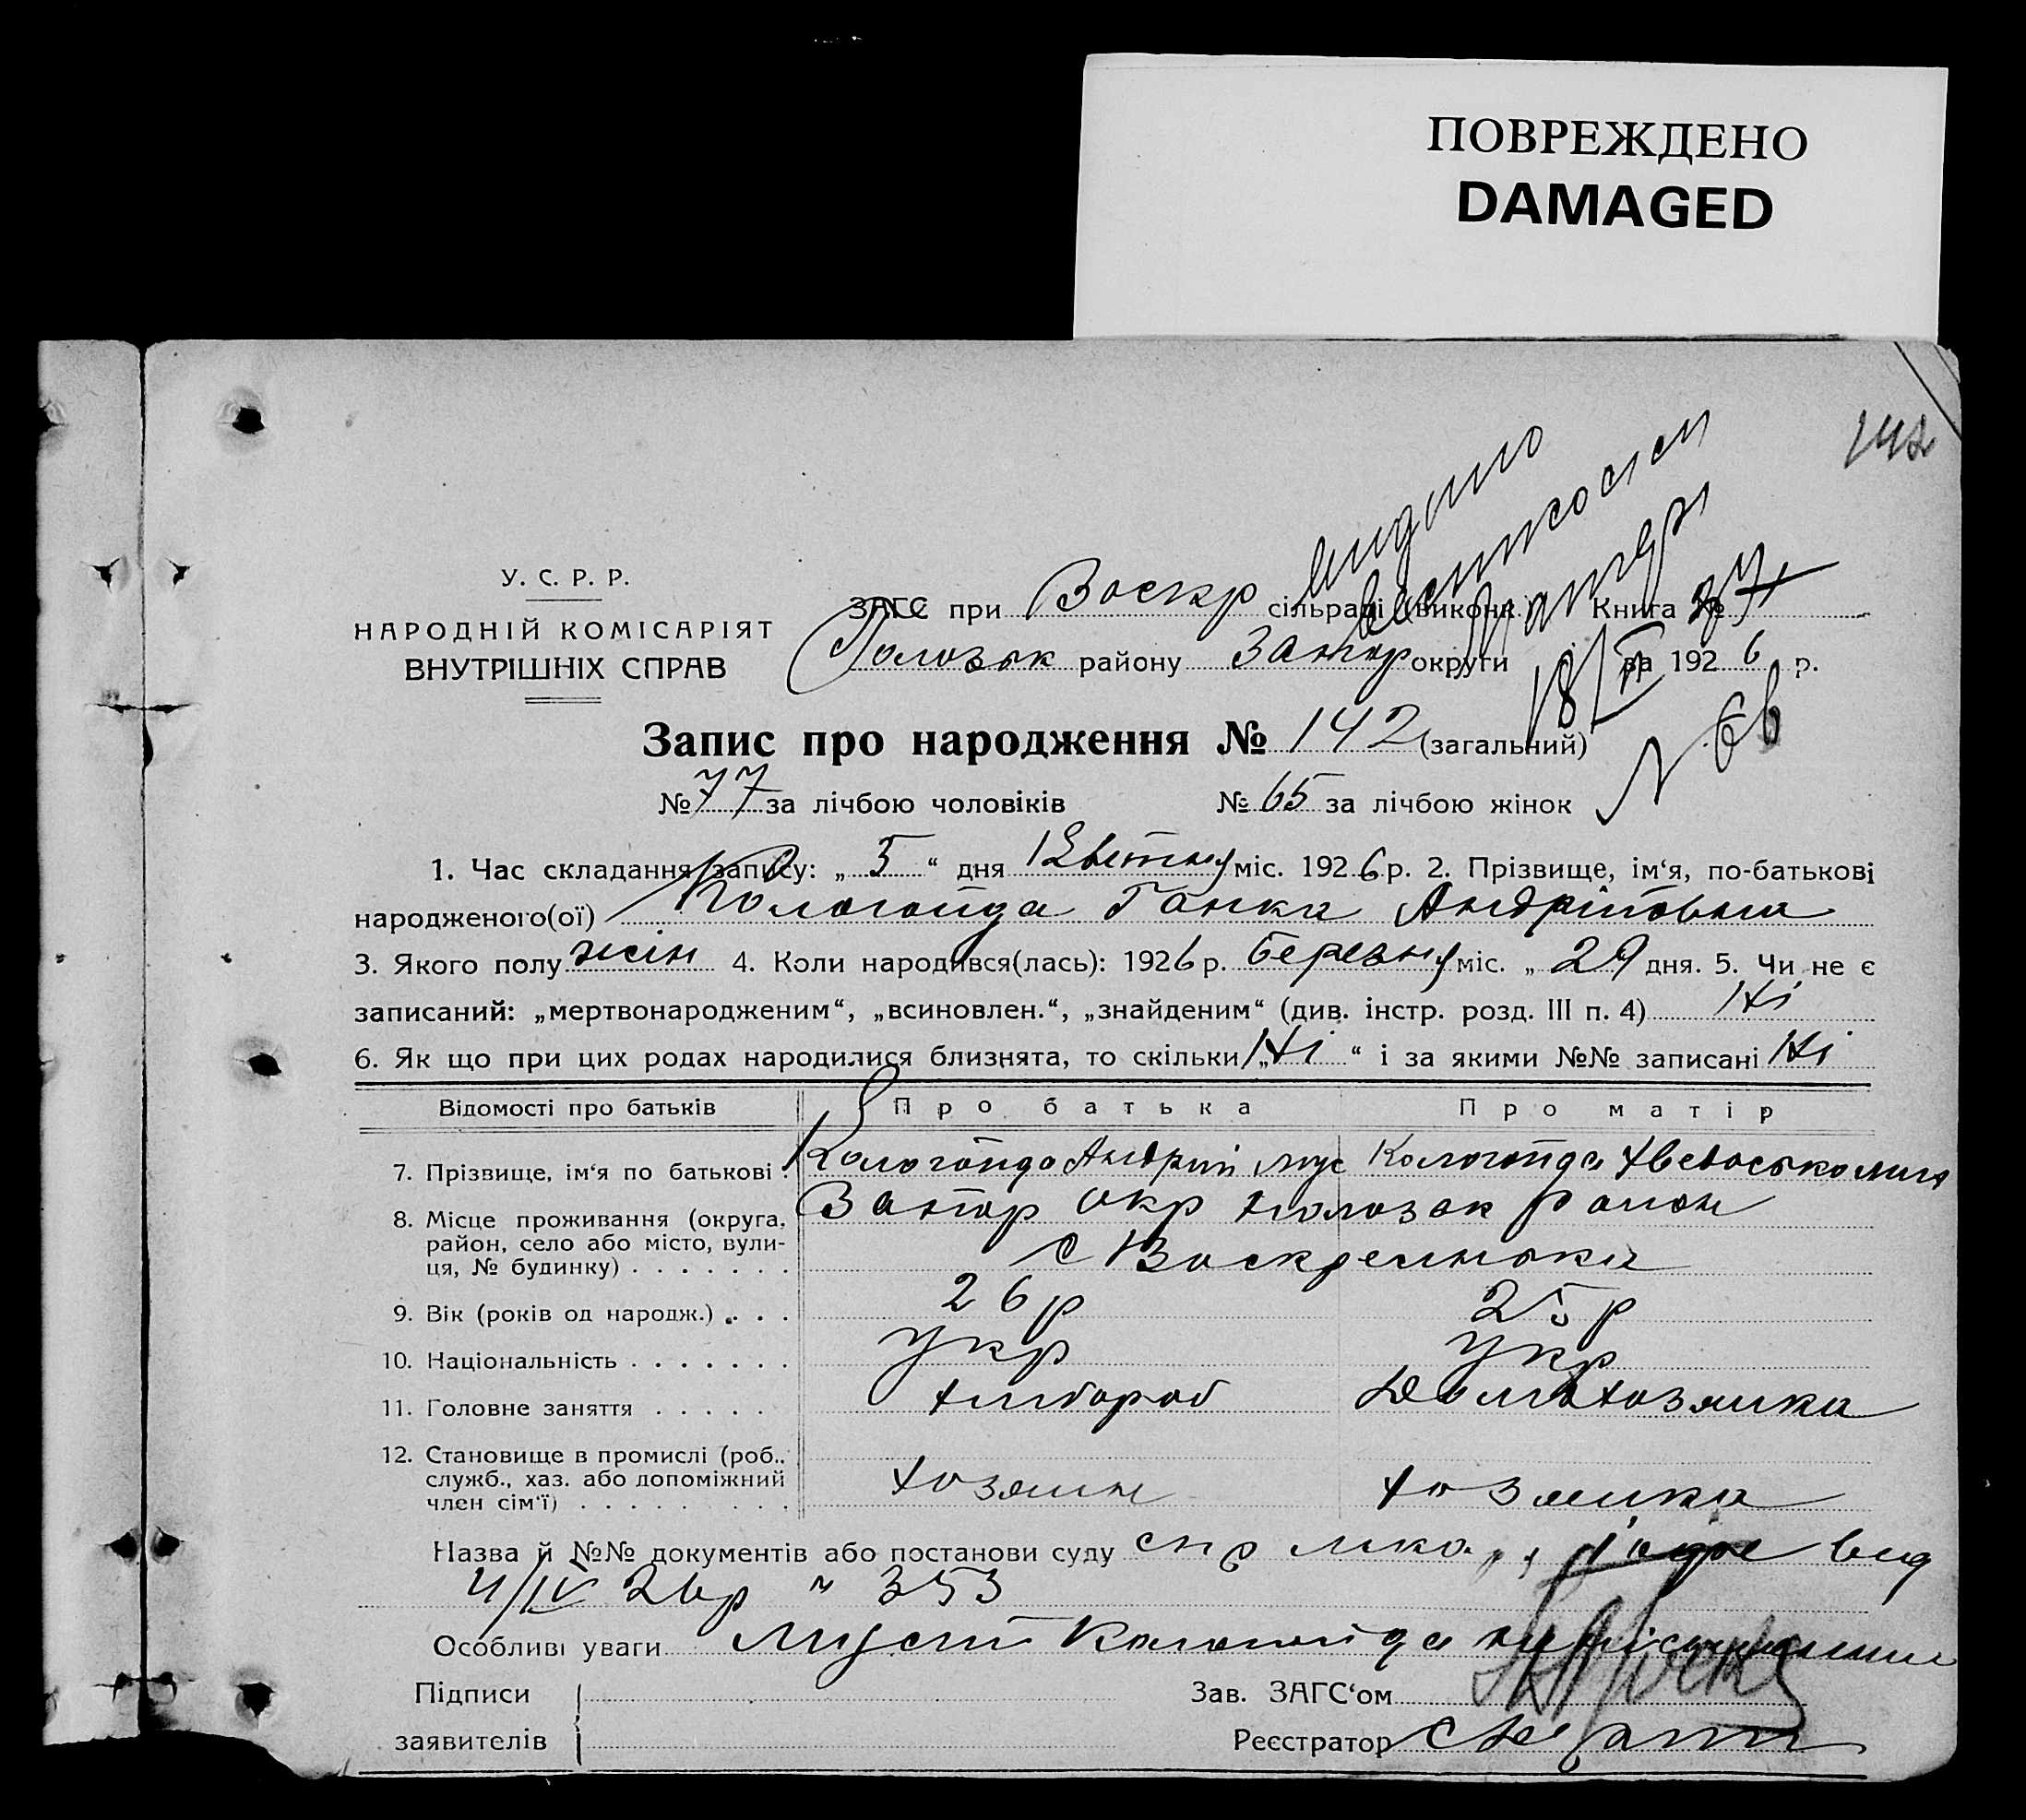 ПОВРЕЖДЕНО
DAMAGED
142
У. С. Р. Р.
НАРОДНІЙ КОМІСАРІЯТ
ВНУТРІШНІХ СПРАВ
видано
ЗАГС при Воскр сільраді (виконк.) Книга №
району Запор округи за 1926 р.
18/II
Запис про народження № 142 (загальний)
№ 77 за лічбою чоловіків № 65 за лічбою жінок
1. Час складання запису: „ 5 “ дня Цвітня міс. 1926 р. 2. Прізвище, ім‘я, по-батькові
народженого(ої) Кологойда Ганна Андріївна
3. Якого полу жін 4. Коли народився(лась): 1926 р. березня міс. „ 29 дня. 5. Чи не є
записаний: „мертвонародженим“, „всиновлен.“, „знайденим“ (див. інстр. розд. III п. 4) Ні
6. Як що при цих родах народилися близнята, то скільки „ Ні “ і за якими №№ записані Ні
Відомості про батьків Про батька Про матір
7. Прізвище, ім‘я по батькові . Кологойда Андрій Кологойда
8. Місце проживання (округа, Запор окр район
район, село або місто, вули-
ця, № будинку) . . . . . . . с Воскресенька
9. Вік (років од народж.) . . . 26 р 25 р
10. Національність . . . . . . . Укр Укр
11. Головне заняття . . . . . хлібороб Домохозяйка
12. Становище в промислі (роб.,
служб., хаз. або допоміжний
член сім‘ї) . . . . . . . . . хозяин хозяйка
Назва й №№ документів або постанови суду вид
4/IV 26р № 353
Особливі уваги Кологойда
Підписи Зав. ЗАГС‘ом
заявителів Реєстратор